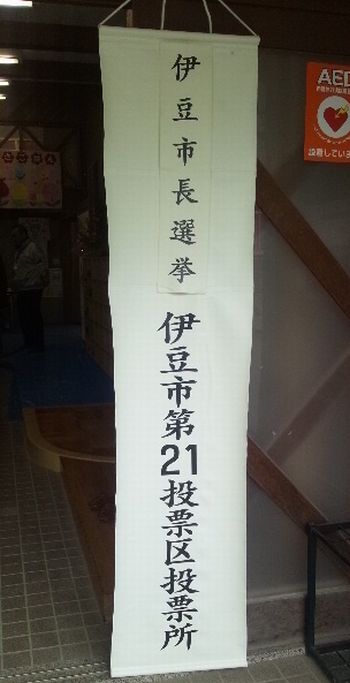 伊豆市長選挙
伊豆市第21投票区投票所
AED